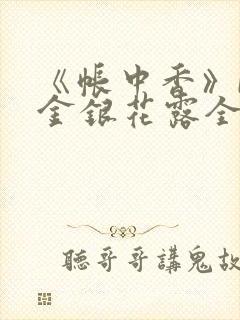 《帳中香》
金銀花露全
聽哥哥講鬼故